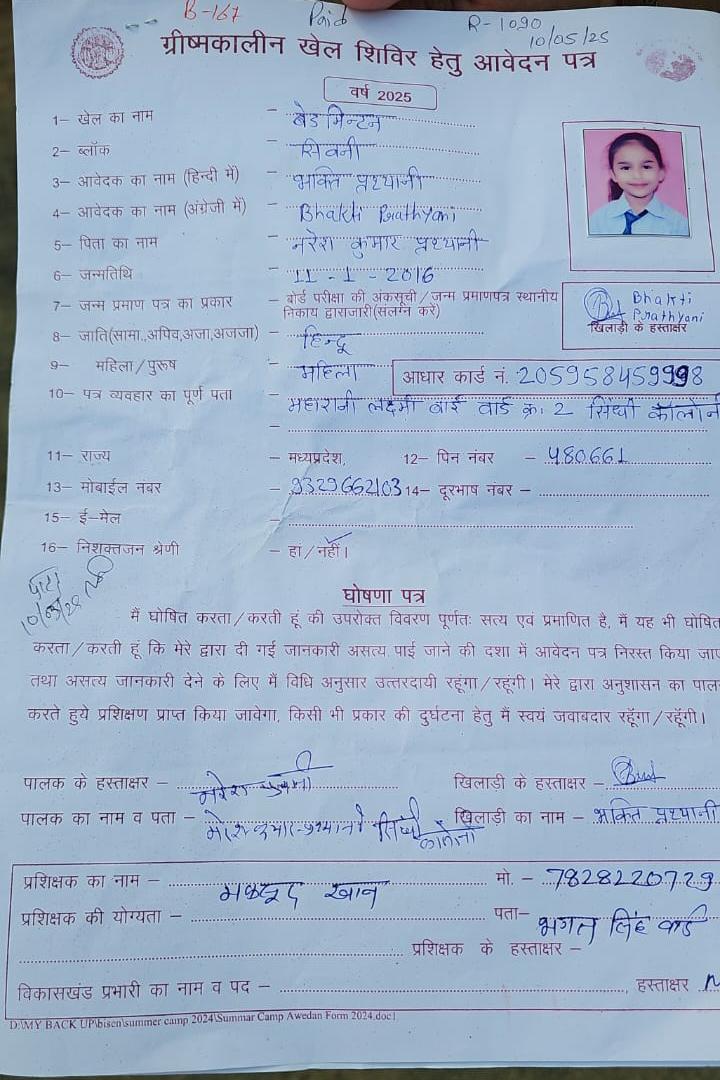 B-167 Paid R-1090
10/05/25
ग्रीष्मकालीन खेल शिविर हेतु आवेदन पत्र
वर्ष 2025
1– खेल का नाम – बेडमिन्टन
2– ब्लॉक – सिवनी
3– आवेदक का नाम (हिन्दी में) – भक्ति प्रथ्यानी
4– आवेदक का नाम (अंग्रेजी में) – Bhakti Prathyani
5– पिता का नाम – नरेश कुमार प्रथ्यानी
6– जन्मतिथि – 11 - 1 - 2016
7– जन्म प्रमाण पत्र का प्रकार – बोर्ड परीक्षा की अंकसूची/जन्म प्रमाणपत्र स्थानीय
निकाय द्वाराजारी(सलंग्न करें)
Bhakti
Prathyani
खिलाड़ी के हस्ताक्षर
8– जाति(सामा.,अपिव,अजा,अजजा) – हिन्दू
9– महिला/पुरूष – महिला
आधार कार्ड नं. 205958459998
10– पत्र व्यवहार का पूर्ण पता – महारानी लक्ष्मी बाई वार्ड क्र. 2 सिंधी कॉलोनी
11– राज्य – मध्यप्रदेश, 12– पिन नंबर – 480661
13– मोबाईल नबर – 9329662103 14– दूरभाष नंबर –
15– ई–मेल –
16– निशक्तजन श्रेणी – हां/नहीं।
घोषणा पत्र
मैं घोषित करता/करती हूं की उपरोक्त विवरण पूर्णतः सत्य एवं प्रमाणित है, मैं यह भी घोषित
करता/करती हूं कि मेरे द्वारा दी गई जानकारी असत्य पाई जाने की दशा में आवेदन पत्र निरस्त किया जाए
तथा असत्य जानकारी देने के लिए मैं विधि अनुसार उत्तरदायी रहूंगा/रहूंगी। मेरे द्वारा अनुशासन का पालन
करते हुये प्रशिक्षण प्राप्त किया जावेगा, किसी भी प्रकार की दुर्घटना हेतु मैं स्वयं जवाबदार रहूँगा/रहूँगी।
पालक के हस्ताक्षर – खिलाड़ी के हस्ताक्षर –
पालक का नाम व पता – सिंधी कॉलोनी खिलाड़ी का नाम – भक्ति प्रथ्यानी
प्रशिक्षक का नाम – मकसूद खान मो. – 7828220729
प्रशिक्षक की योग्यता – पता– भगत सिंह वार्ड
प्रशिक्षक के हस्ताक्षर –
विकासखंड प्रभारी का नाम व पद – , हस्ताक्षर
D:\MY BACK UP\bisen\summer camp 2024\Summar Camp Awedan Form 2024.doc1